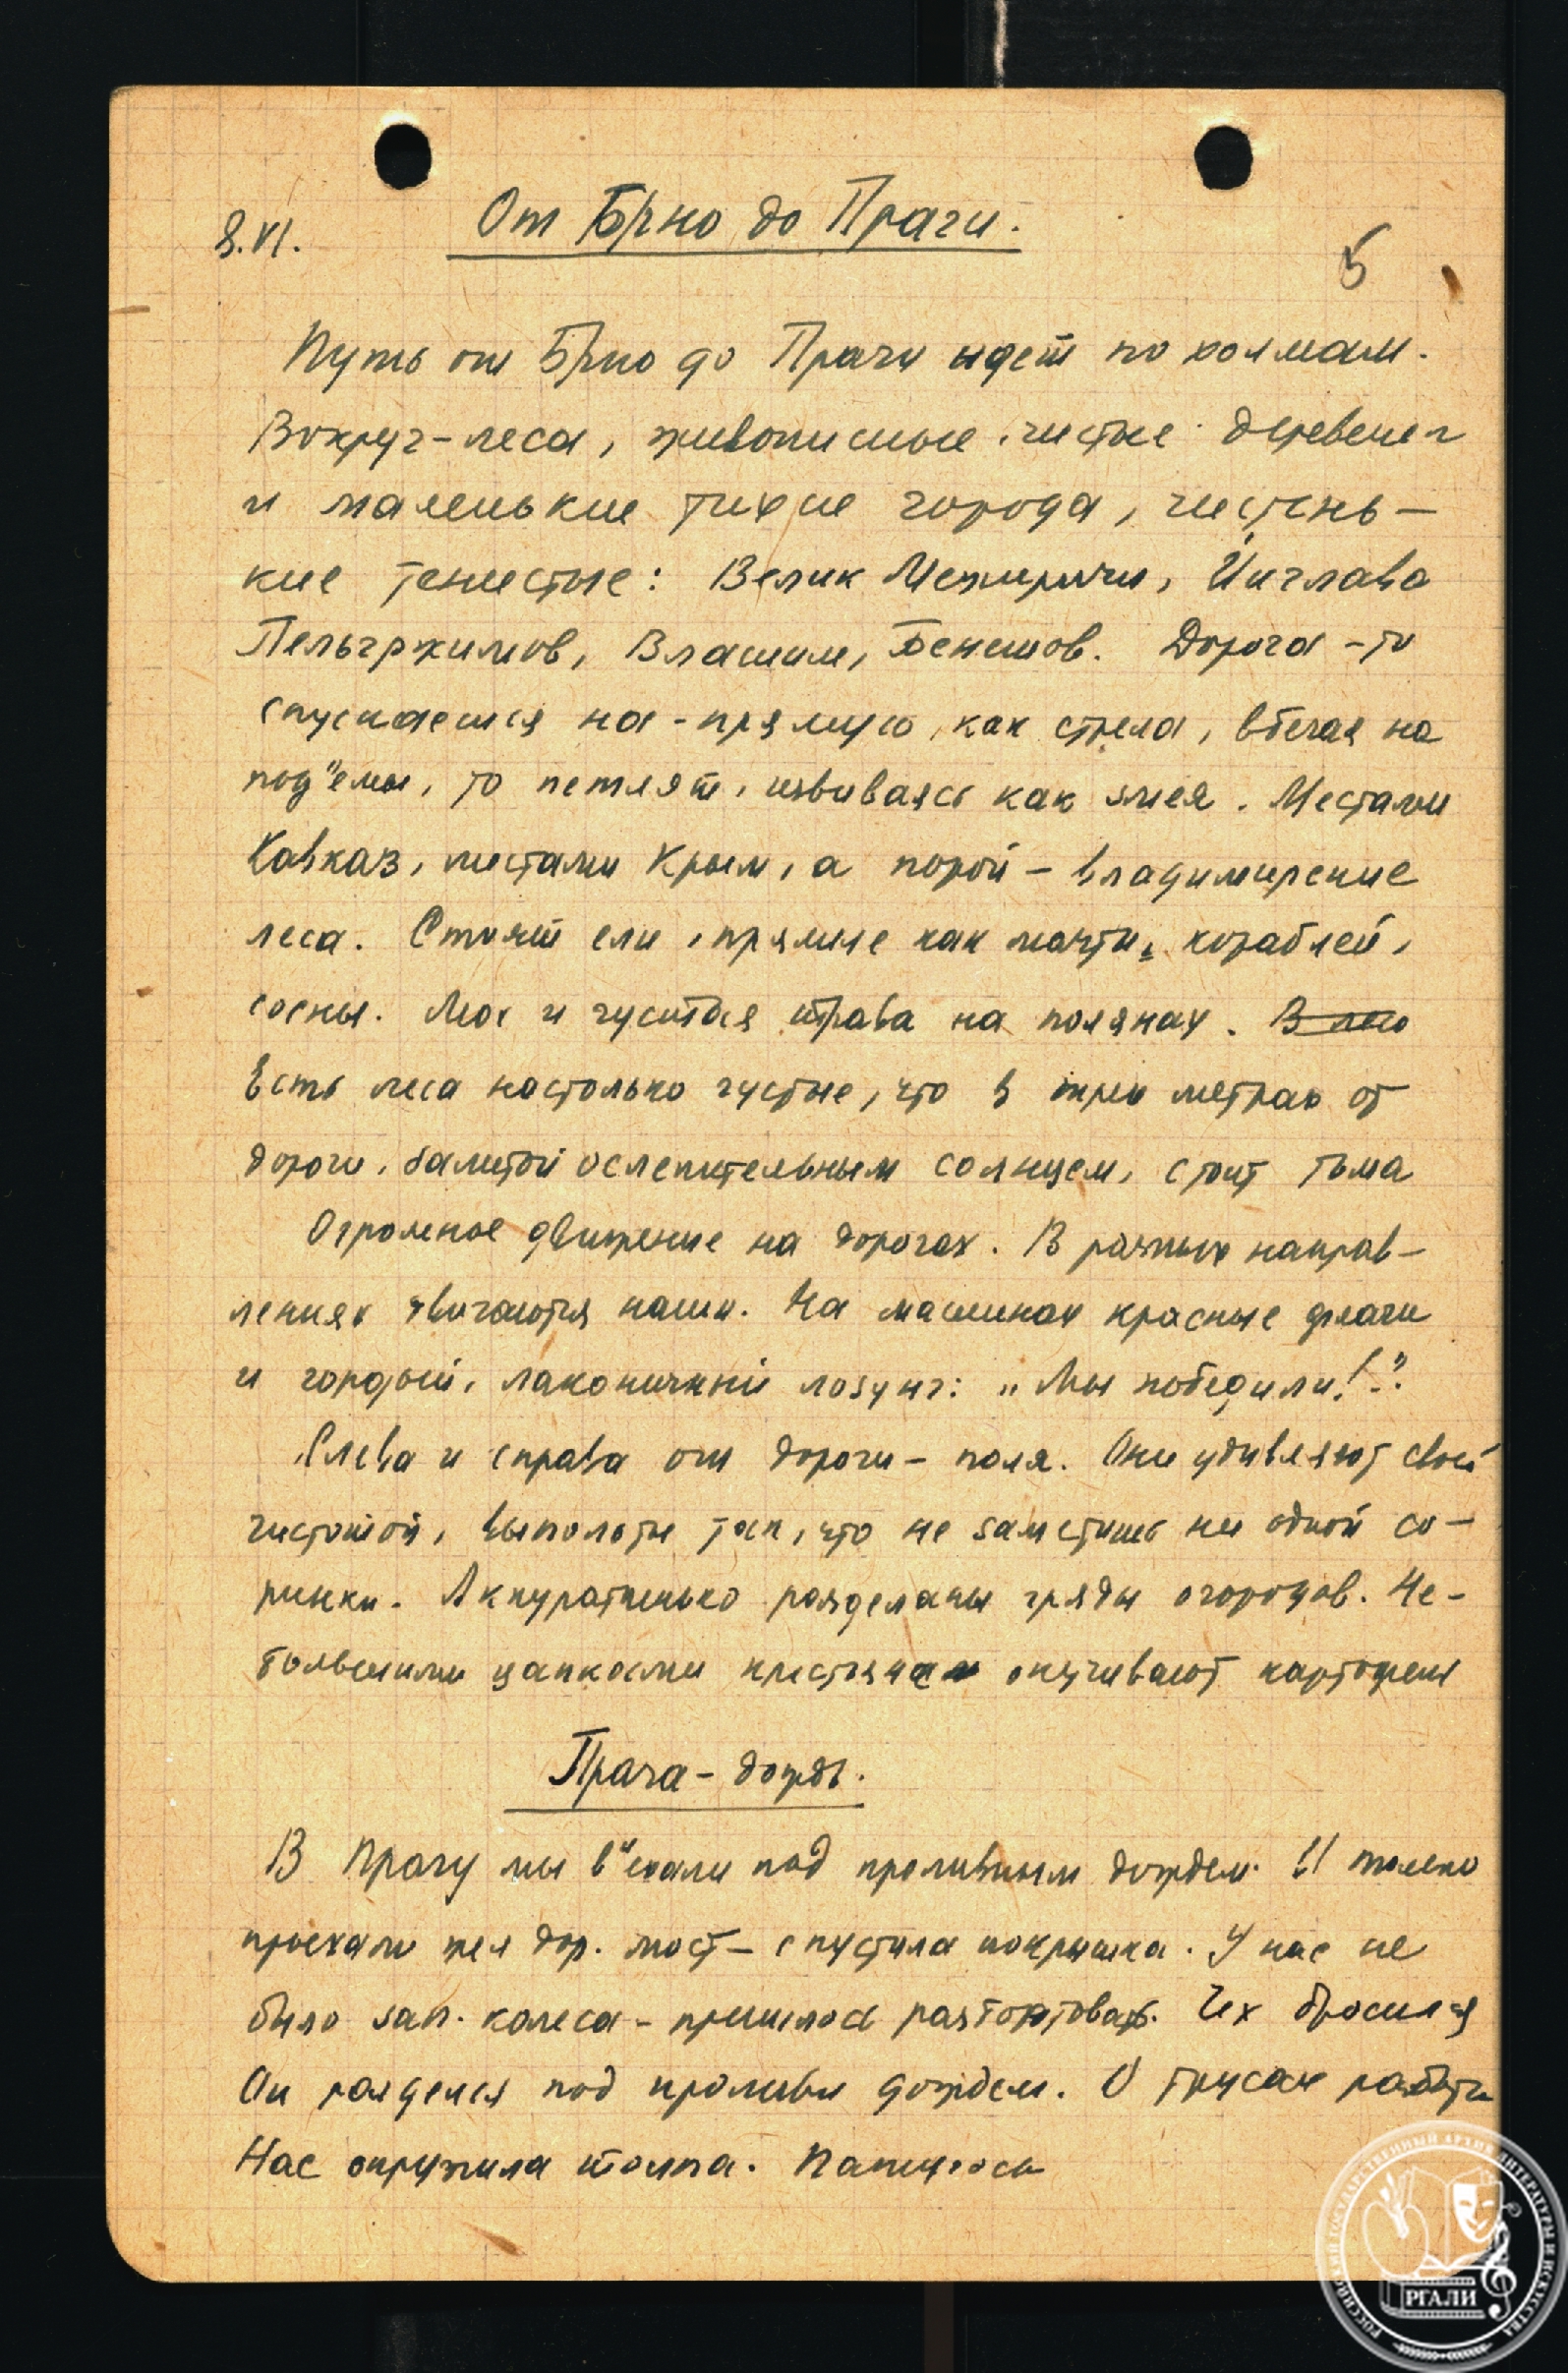 8.VI.
От Брно до Праги.
5
Путь от Брно до Праги идет по холмам.
Вокруг-леса, живописные, чистые деревеньки
и маленькие тихие города, чистень-
кие тенистые: Велик Межиричи, Йиглава
Пельгржимов, Влашим, Бенешов. Дорога-то
спускается на-прямую, как стрела, взбегая на
под"емы, то петляет, извиваясь как змея. Местами
Кавказ, местами Крым, а порой - владимирские
леса. Стоят ели, прямые как мачты, кораблей,
сосны. Мох и густая трава на полянах. В лесо
Есть леса настолько густые, что в трех метрах от
дороги, залитой ослепительным солнцем, стоит тьма
Огромное движение на дорогах. В разных направ-
лениях двигаются наши. На машинах красные флаги
и гордый, лаконичный лозунг: „Мы победили!".
Слева и справа от дороги - поля. Они удивляют своей
чистотой, выполоты так, что не заметишь ни одной со-
ринки. Аккуратненько разделаны гряды огородов. Не-
большими цапками крестьяне окучивают картофель
Прага - дождь.
В Прагу мы в"ехали под проливным дождем. И только
проехали жел дор. мост - спустила покрышка. У нас не
было зап. колеса - пришлось разбортовать. Чех бросился
Он разделся под проливн дождем. В трусах
Нас окружила толпа.
РОССИЙСКИЙ ГОСУДАРСТВЕННЫЙ АРХИВ ЛИТЕРАТУРЫ И ИСКУССТВА
РГАЛИ